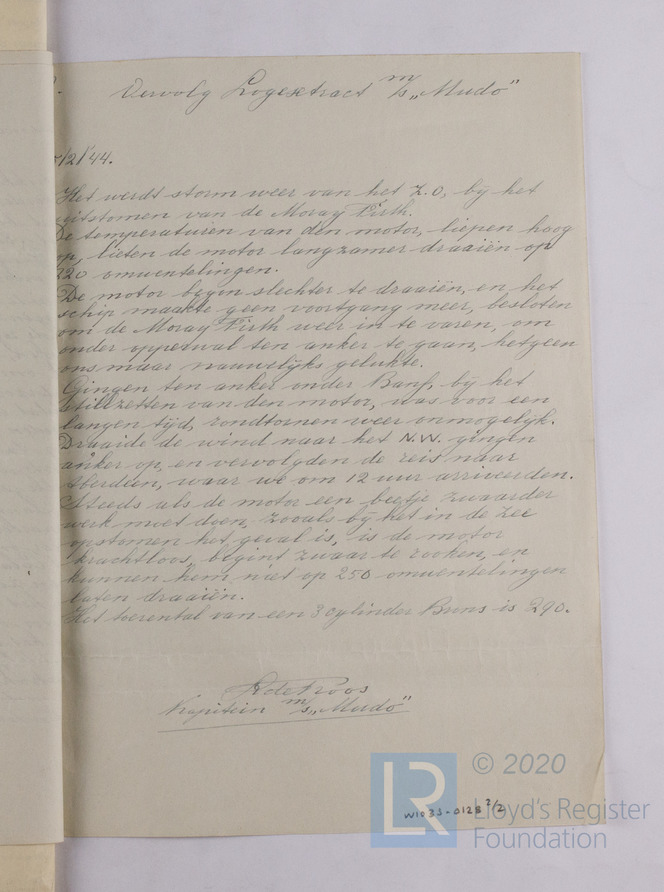 Vervolg Logextract m/s „Mudo"
/2/'44.
Het werdt storm weer van het Z.O, bij het
uitstomen van de Moray Firth.
De temperaturen van den motor, liepen hoog
op, lieten de motor langzamer draaiën op
220 omwentelingen.
De motor begon slechter te draaiën, en het
schip maakte geen voortgang meer, besloten
om de Moray Firth weer in te varen, om
onder opperwal ten anker te gaan, hetgeen
ons maar nauwelijks gelukte.
Gingen ten anker onder Banf, bij het
stillzetten van den motor, was voor een
langen tijd, rondtornen weer onmogelijk.
Draaide de wind naar het N.W. gingen
anker op, en vervolgden de reis naar
Aberdeen, waar we om 12 uur arriveerden.
Steeds als de motor een beetje zwaarder
werk moet doen, zooals bij het in de zee
opstomen het geval is, is de motor
krachtloos, begint zwaar te rooken, en
kunnen hem niet op 250 omwentelingen
laten draaiën.
Het toerental van een 3 cylinder Brons is 290.
Kapitein m/s „Mudo"
© 2020
LR
Lloyd's Register
Foundation
W1033-0128 2/2